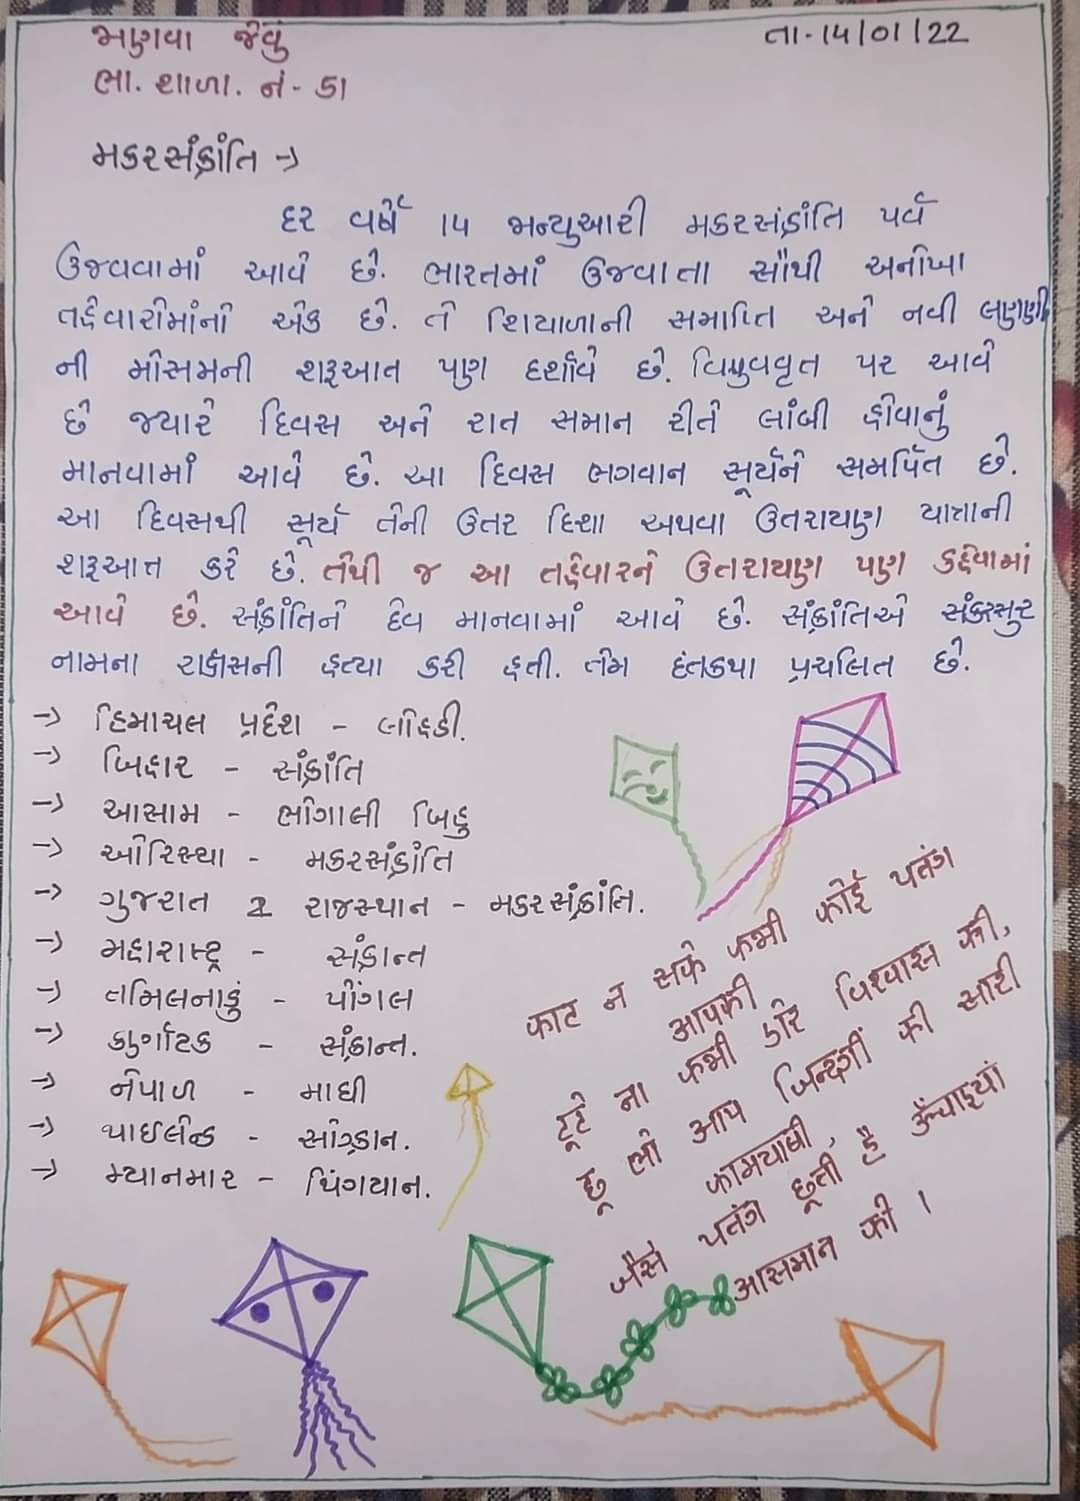 જાણવા જેવું
તા-૧૫/૦૧/૨૨
ભા. શાળા. નં - ૬૧
મકરસંક્રાંતિ →
દર વર્ષે ૧૫ જાન્યુઆરી મકરસંક્રાંતિ પર્વ
ઉજવવામાં આવે છે. ભારતમાં ઉજવાતા સૌથી અનોખા
તહેવારોમાંનો એક છે. તે શિયાળાની સમાપ્તિ અને નવી લણણી
ની મોસમની શરૂઆત પણ દર્શાવે છે. વિષુવવૃત પર આવે
છે જ્યારે દિવસ અને રાત સમાન રીતે લાંબી હોવાનું
માનવામાં આવે છે. આ દિવસ ભગવાન સૂર્યને સમર્પિત છે.
આ દિવસથી સૂર્ય તેની ઉતર દિશા અથવા ઉતરાયણ યાત્રાની
શરૂઆત કરે છે. તેથી જ આ તહેવારને ઉતરાયણ પણ કહેવામાં
આવે છે. સંક્રાંતિને દેવ માનવામાં આવે છે. સંક્રાંતિએ સંકરાસુર
નામના રાક્ષસની હત્યા કરી હતી. તેમ દંતકથા પ્રચલિત છે.
→ હિમાચલ પ્રદેશ - લોહિડી.
→ બિહાર - સંક્રાંતિ
→ આસામ - ભોગાલી બિહુ
→ ઓરિસ્થા - મકરસંક્રાંતિ
→ ગુજરાત રાજસ્થાન - મકરસંક્રાંતિ.
→ મહારાષ્ટ્ર - સંક્રાન્ત
→ તમિલનાડું - પોંગલ
→ કર્ણાટક - સંક્રાન્ત.
→ નેપાળ - માઘી
→ થાઈલેન્ડ - સોંગ્ક્રાન.
→ મ્યાનમાર - થિંગયાન.
काट न सके कभी कोई पतंग
आपकी
टूटे ना कभी डोर विश्वास की,
छू लो आप जिन्दगी की सारी
कामयाबी,
जैसे पतंग छूती है ऊँचाइयां
आसमान की।